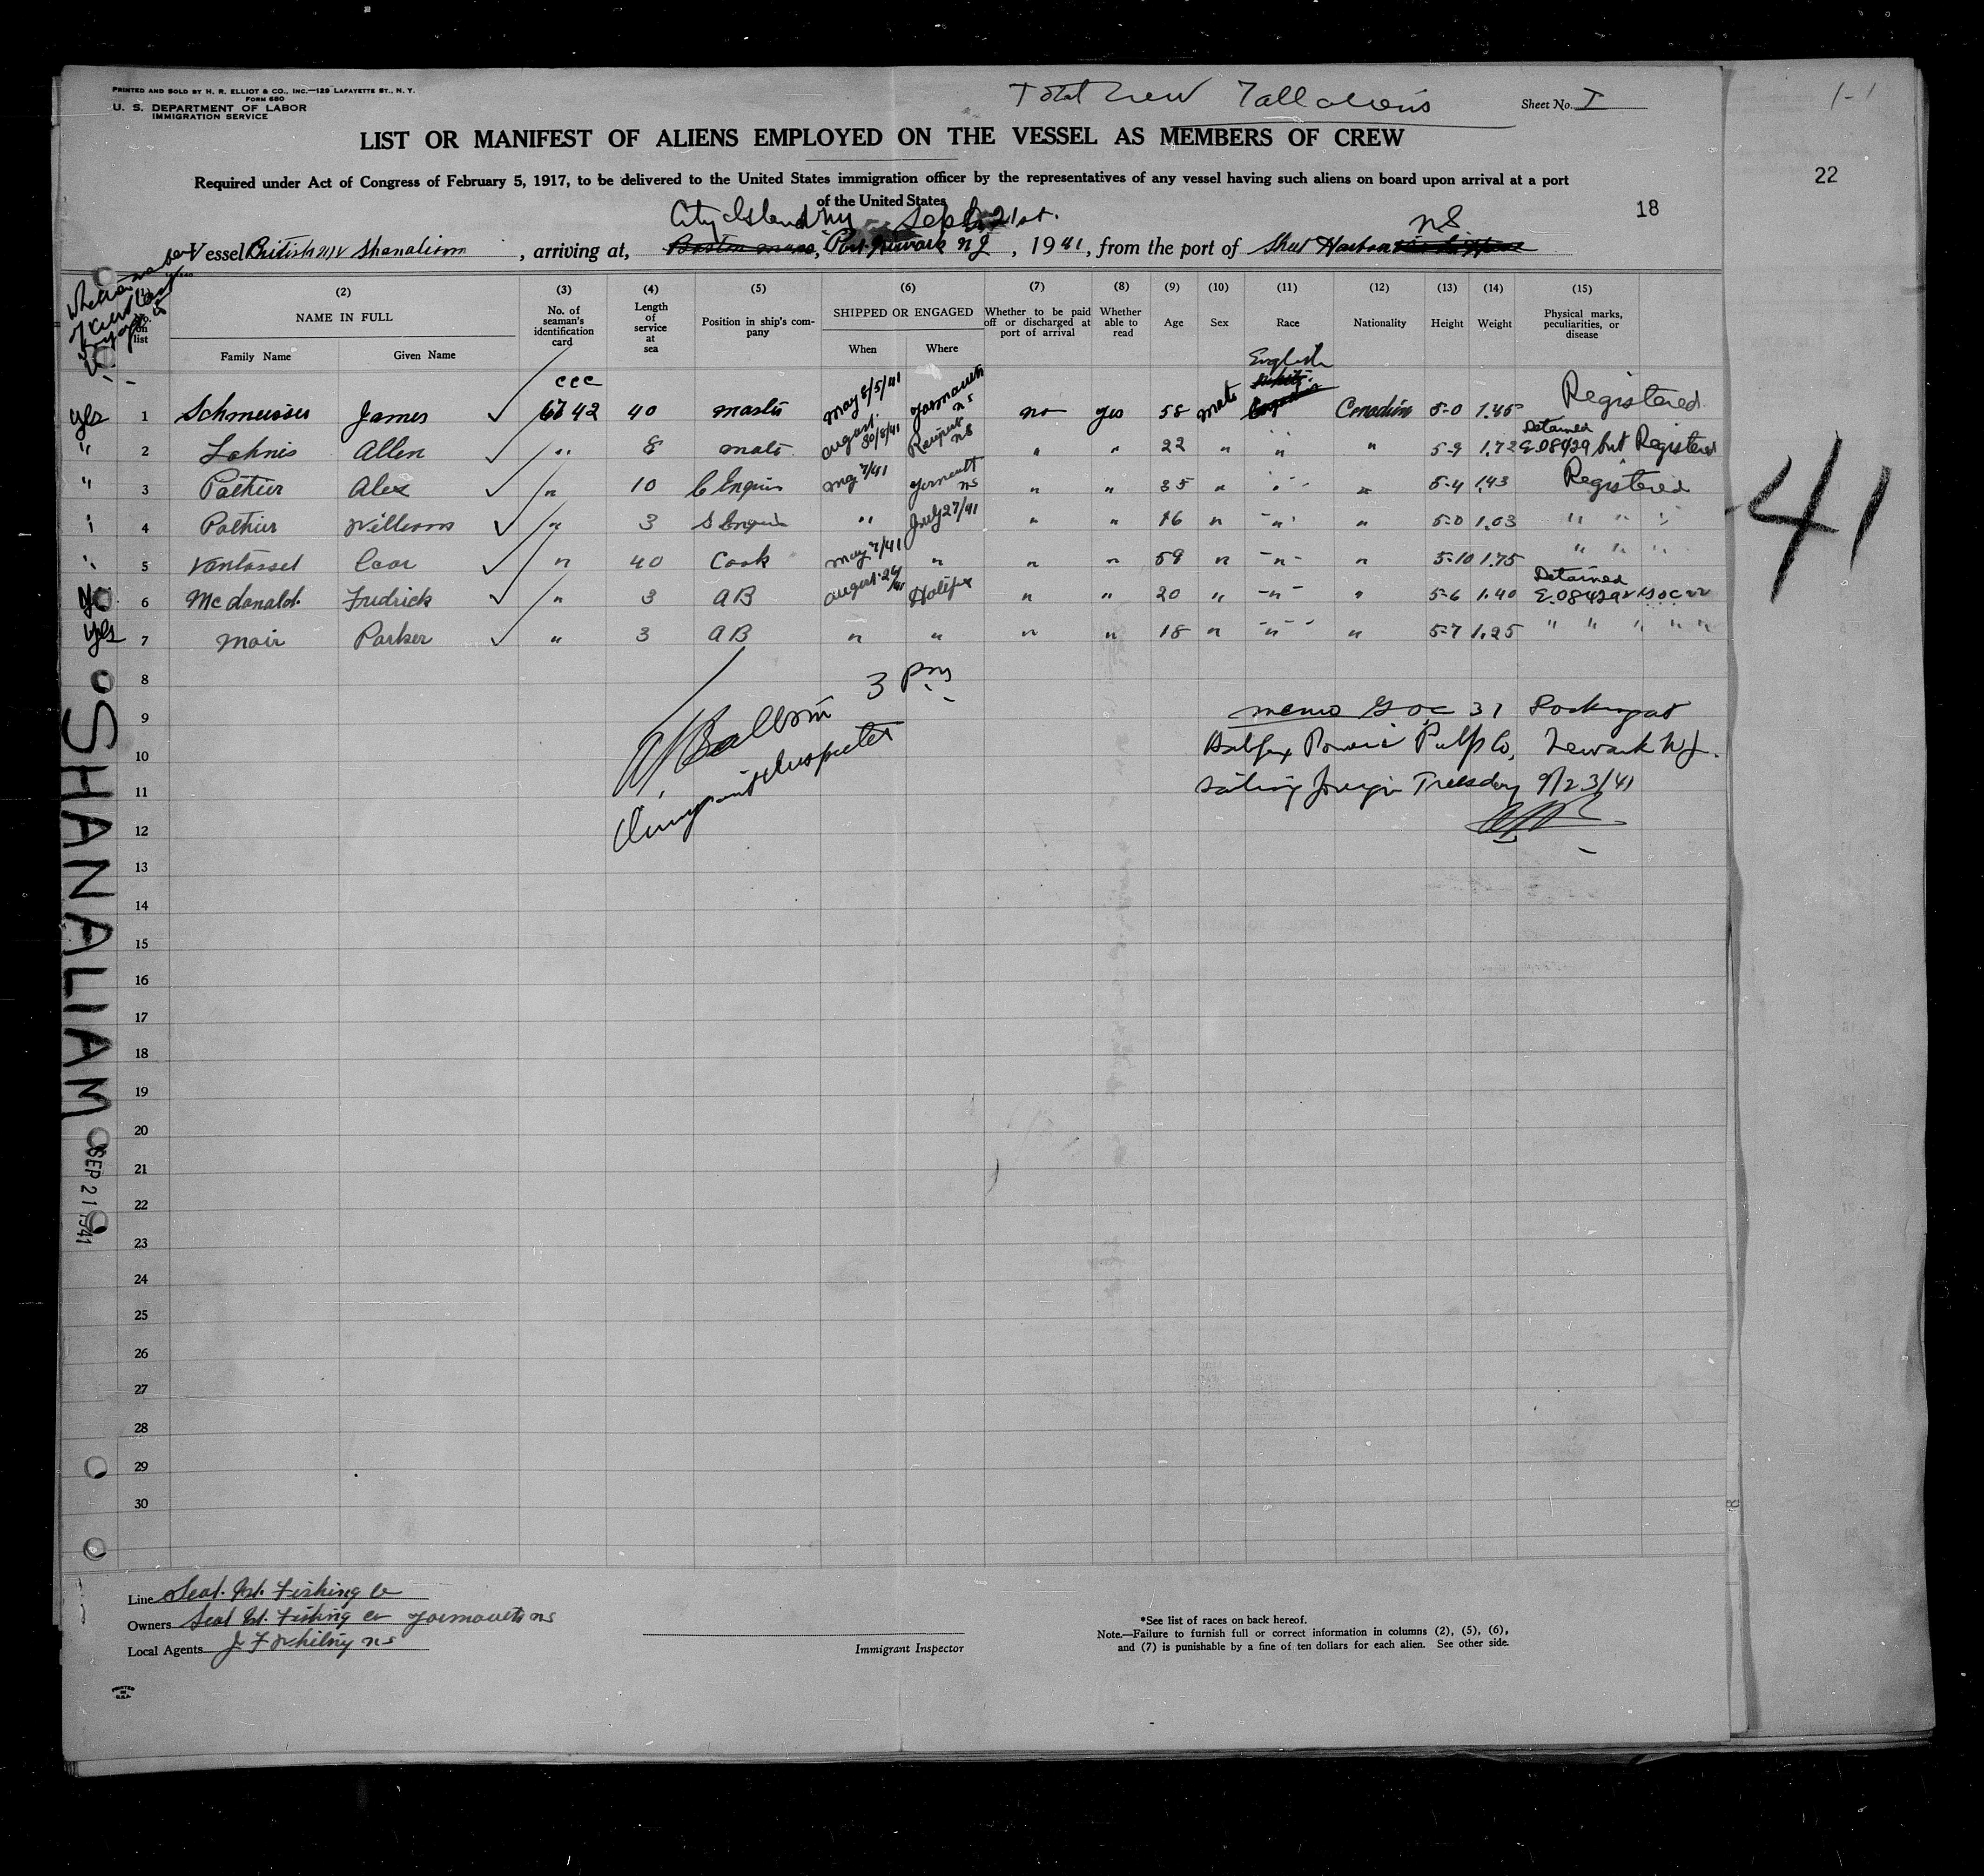 PRINTED AND SOLD BY H. R. ELLIOT & CO., INC.—129 LAFAYETTE ST., N. Y.
FORM 680
U. S. DEPARTMENT OF LABOR
IMMIGRATION SERVICE
Total crew 7 all aliens
Sheet No. I
1-1
LIST OR MANIFEST OF ALIENS EMPLOYED ON THE VESSEL AS MEMBERS OF CREW
Required under Act of Congress of February 5, 1917, to be delivered to the United States immigration officer by the representatives of any vessel having such aliens on board upon arrival at a port
of the United States
22
18
City Island NY Sept 21st.
Vessel British M/V Shanaliam, arriving at, Boston Mass, Port Newark NJ, 1941, from the port of Shut Harbour NS.
Whether member of crew last voyage to U.S.
(1) No. on list
(2) NAME IN FULL
Family Name
Given Name
(3) No. of seaman's identification card
(4) Length of service at sea
(5) Position in ship's company
(6) SHIPPED OR ENGAGED
When
Where
(7) Whether to be paid off or discharged at port of arrival
(8) Whether able to read
(9) Age
(10) Sex
(11) Race
(12) Nationality
(13) Height
(14) Weight
(15) Physical marks, peculiarities, or disease
CCC
English
yes 1 James 6742 40 master May 8/5/41 Yarmouth NS no yes 58 male Canadian 5-0 1.45 Registered
" 2 Allen " 8 mate August 30/8/41 NS " " 22 " " " 5-9 1.72 Detained E.08429 but Registered
" 3 Pothier Alex " 10 C Engin May 7/41 NS " " 35 " " " 5-4 143 Registered
" 4 Pothier William " 3 S Engin " July 27/41 " " 16 " " " 5-0 1.03 " " "
" 5 Vantassel " 40 Cook May 7/41 " " " 59 " " " 5-10 1.75 " " "
yes 6 McDonald Fredrick " 3 AB August 24/41 Halifax " " 20 " " " 5-6 1.40 Detained
yes 7 Moir Parker " 3 AB " " " " 18 " " " 5-7 1.25 " " " " "
8
9
10
11
12
13
14
15
16
17
18
19
20
21
22
23
24
25
26
27
28
29
30
3 PM
Immigrant Inspector
memo 31 Docking at
Halifax Power & Pulp Co, Newark NJ.
sailing foreign Tuesday 9/23/41
41
SHANALIAM
SEP 21 1941
Line Seal Isl. Fishing Co
Owners Seal Isl. Fishing Co Yarmouth NS
Local Agents J F NS
Immigrant Inspector
*See list of races on back hereof.
Note.—Failure to furnish full or correct information in columns (2), (5), (6),
and (7) is punishable by a fine of ten dollars for each alien. See other side.
PRINTED IN U.S.A.